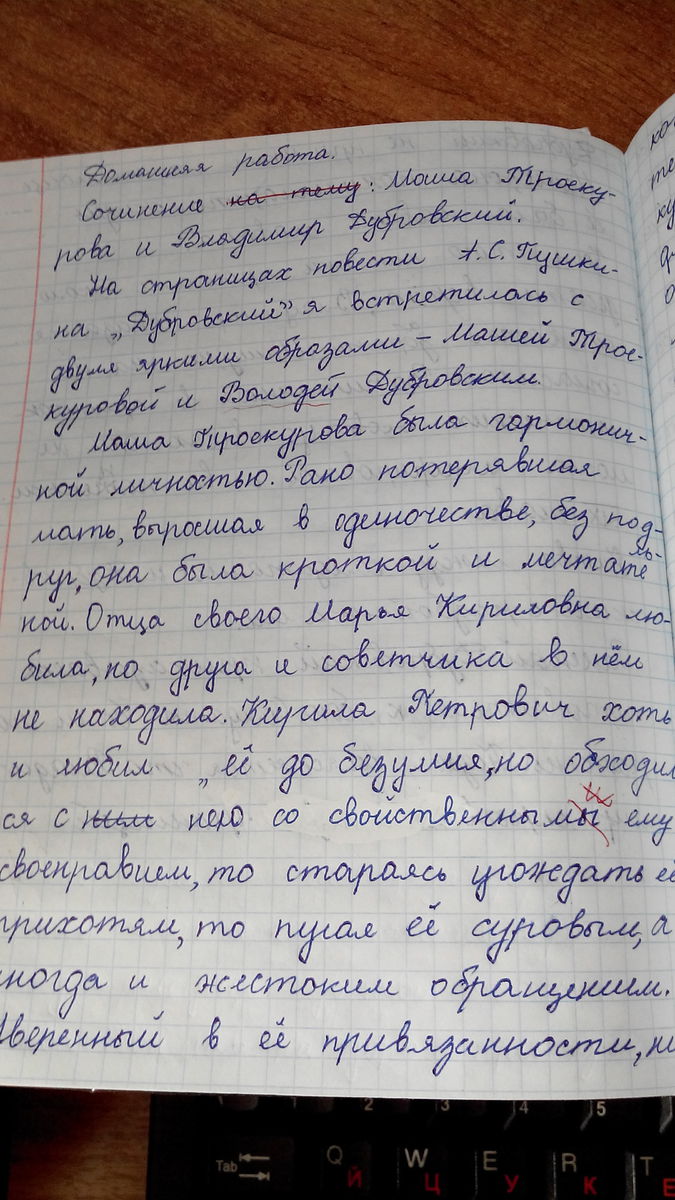 Домашняя работа.
Сочинение на тему: Маша Троеку-
рова и Владимир Дубровский.
На страницах повести А.С. Пушки-
на „Дубровский" я встретилась с
двумя яркими образами – Машей Трое-
куровой и Володей Дубровским.
Маша Троекурова была гармонич-
ной личностью. Рано потерявшая
мать, выросшая в одиночестве, без под-
руг, она была кроткой и мечтатель-
ной. Отца своего Марья Кириловна лю-
била, но друга и советчика в нём
не находила. Кирила Петрович хоть
и любил „её до безумия, но обходил
ся с ним нею со свойственным ему
своенравием, то стараясь угождать её
прихотям, то пугая её суровым, а
иногда и жестоким обращением.
Уверенный в её привязанности, ни
ко
те
ку
Tab
2
3
4
5
Q Й
W Ц
E У
R К
T Е